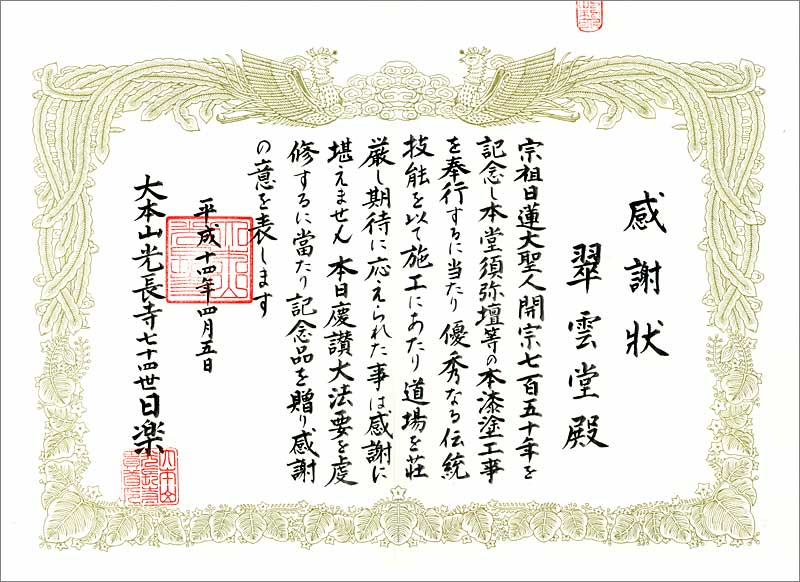 感謝状
翠雲堂殿
宗祖日蓮大聖人開宗七百五十年を
記念し本堂須弥壇等の本漆塗工事
を奉行するに当たり優秀なる伝統
技能を以て施工にあたり道場を荘
厳し期待に応えられた事は感謝に
堪えません本日慶讃大法要を虔
修するに當たり記念品を贈り感謝
の意を表します
平成十四年四月五日
大本山光長寺七十四世日楽